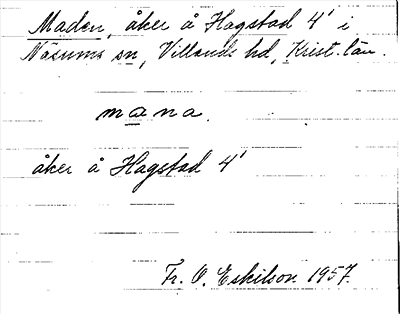 Maden, åker å Hagstad 4¹ i
Näsums sn, Villands hd, Krist. län.
mana.
åker å Hagstad 4¹
Fr. O. Eskilson 1957.